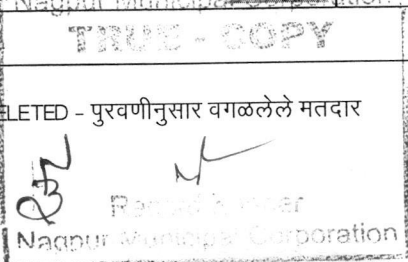 Nagpur Municipal Corporation
TRUE - COPY
ELETED – पुरवणीनुसार वगळलेले मतदार
Nagpur Municipal Corporation